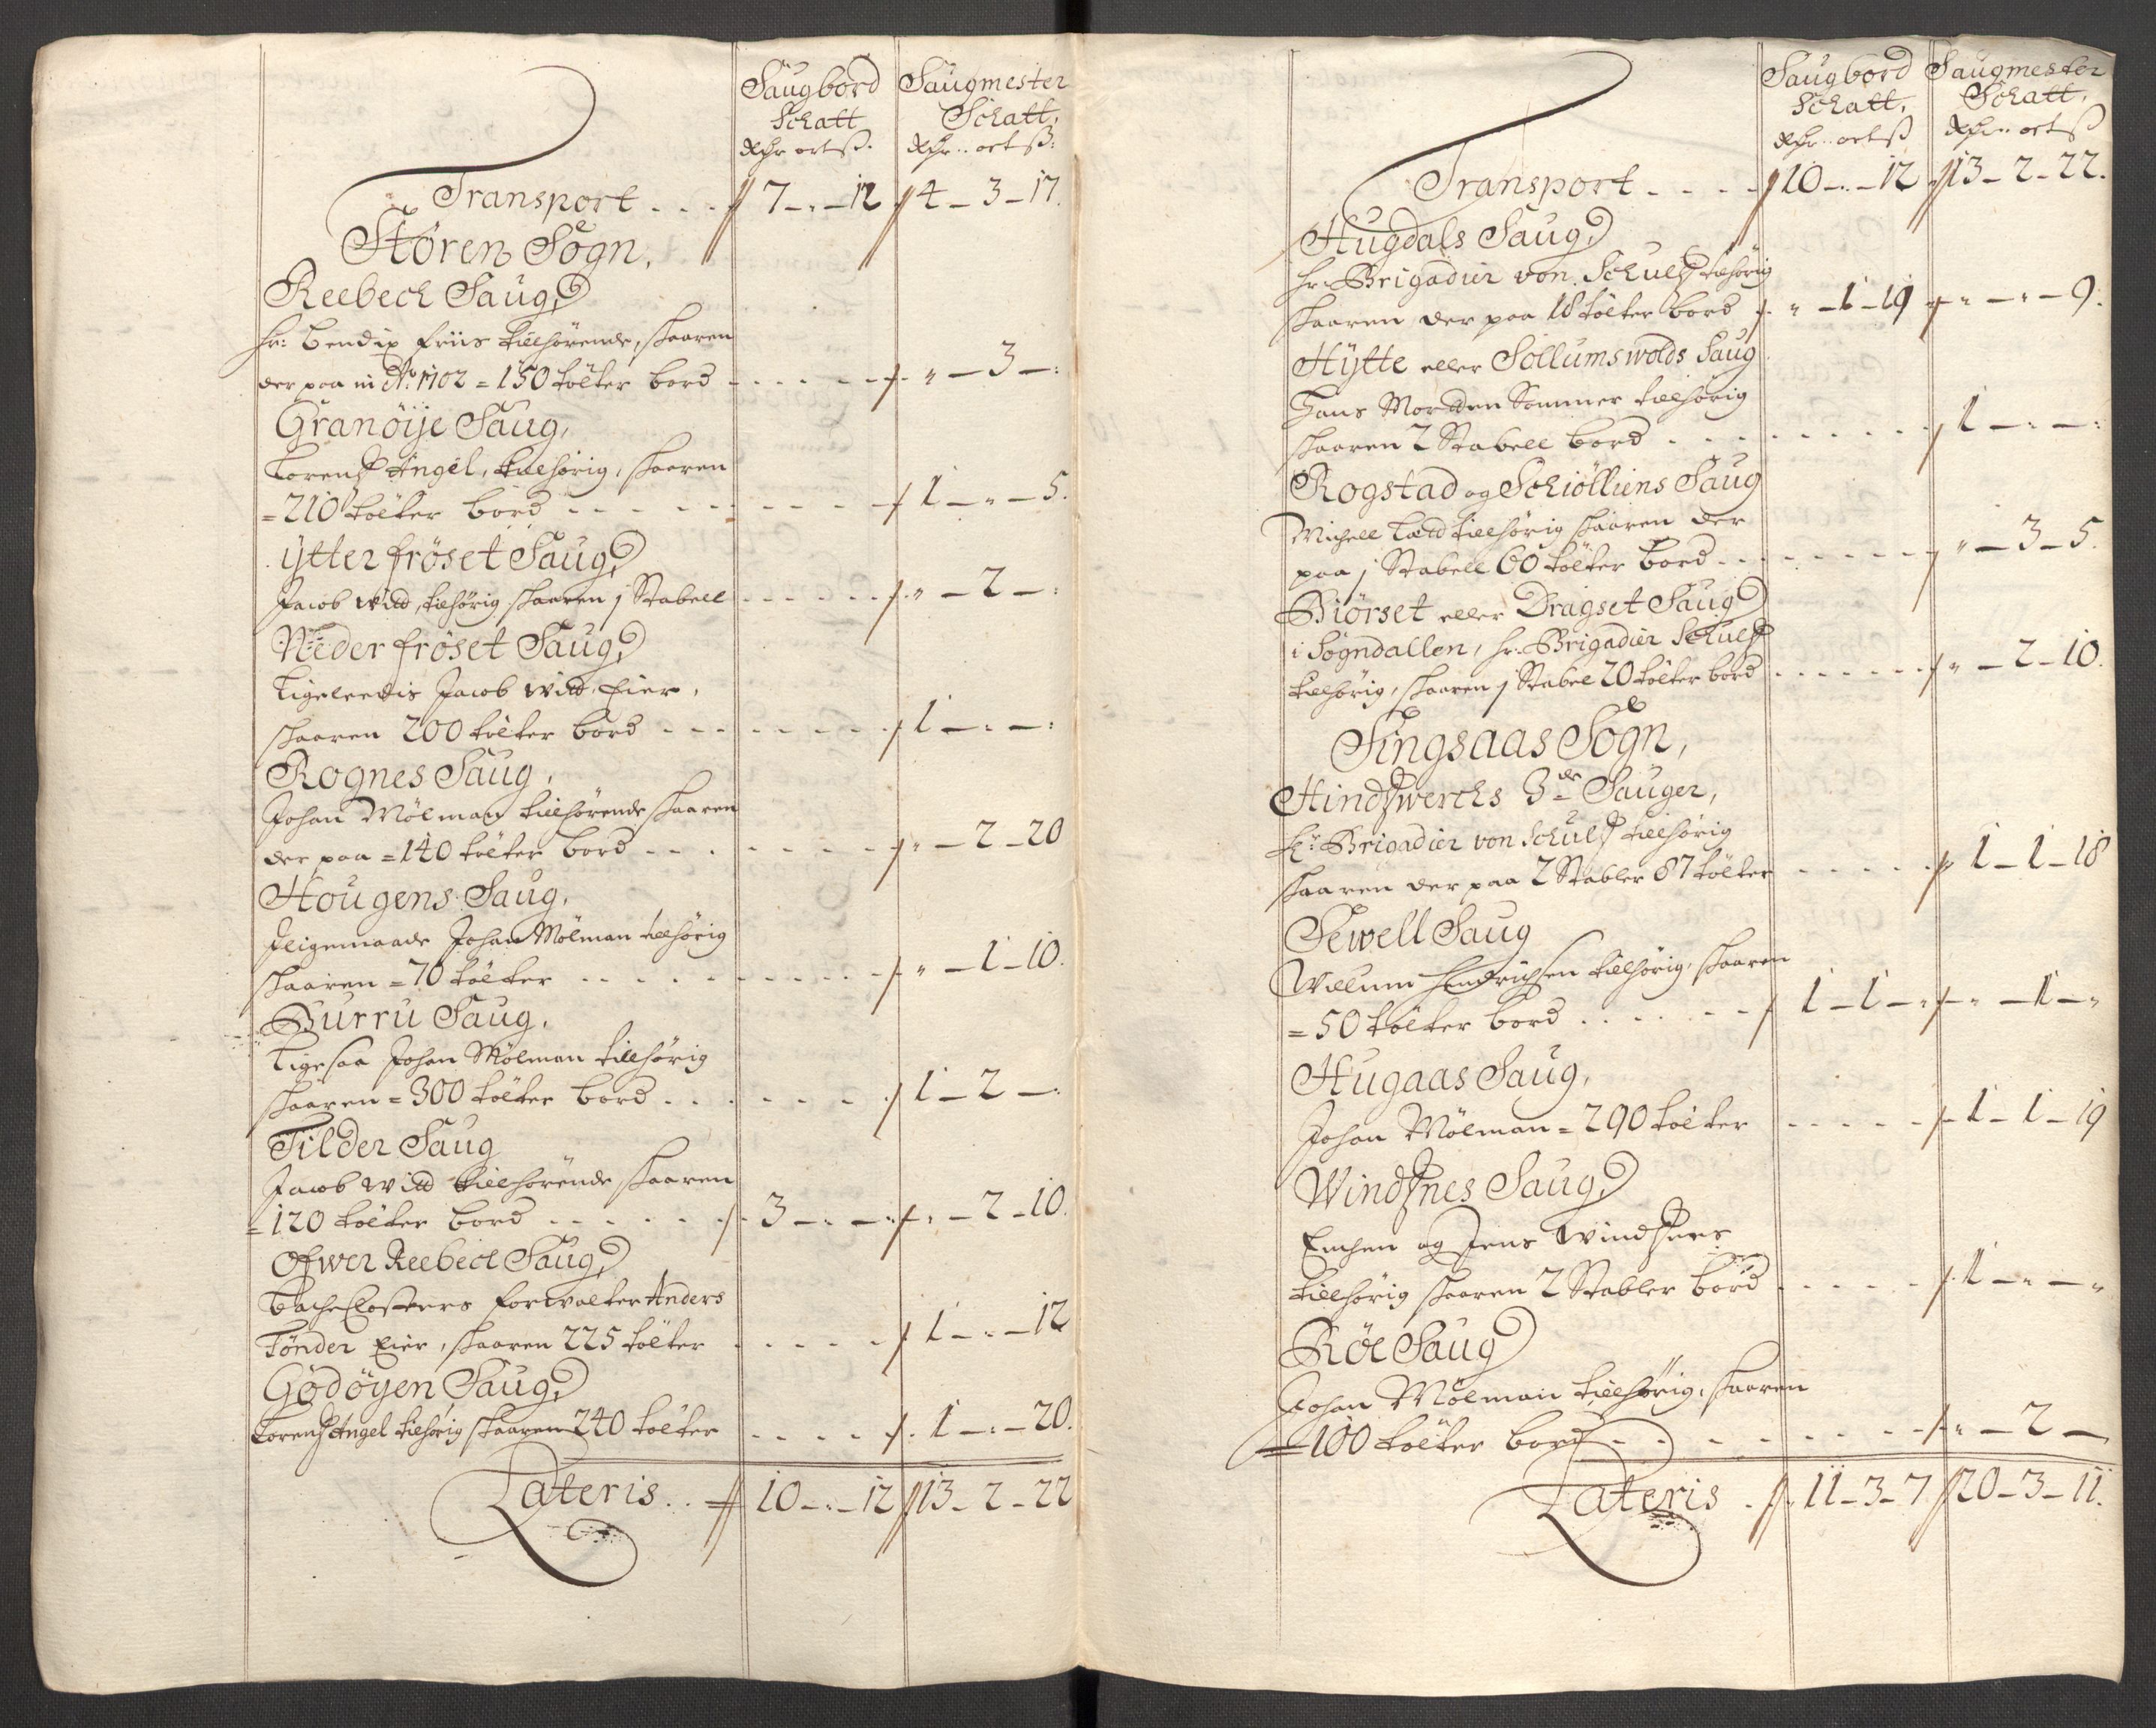 Saugbord Saugmester
Schatt Schatt,
Rdr ort ß. Rdr .. ort ß:
Transport . . . 7 - " - 12 4 - 3 - 17.
Støren Sogn,
Reebech Saug,
Hr: Bendix Friis tillhørende, skaaren
der paa in Ao. 1702 = 150 tölter bord - - - - - " - 3 - :
Granöije Saug,
Lorentz Angel, tillhörig, skaaren
= 210 tölter bord - - - - - 1 - " - 5.
ytter fröset Saug,
Jacob Wild, tilhörig skaaren j Stabell - - - - - " - 2 - :
Neder fröset Saug,
Ligeleedis Jacob Wild, Eier,
skaaren 200 tölter bord - - - - - 1 - : - :
Rognes Saug,
Johan Mölman tillhörende skaaren
der paa = 140 tölter bord - - - - - " - 2 - 20
Hougens Saug,
Iligemaade Johan Mölman tillhörig
skaaren = 70 tölter - - - - - " - 1 - 10.
Burru Saug,
Ligesaa Johan Mölman tillhörig
skaaren = 300 tölter bord - - - - - 1 - 2 - :
Tilder Saug
Jacob Wild tillhörende skaaren
= 120 tölter bord - - - - - 3 - : - : " - 2 - 10.
Ofwer Reebech Saug,
Bache Closters forwalter Anders
Tønder Eier, skaaren 225 tölter - - - - - 1 - : - 12
Godöyen Saug,
Lorentz Angel tilhörig skaaren 240 tölter - - - - - 1 - : - 20.
Lateris . . 10 - : - 12 13 - 2 - 22
Saugbord Saugmester
Schatt, Schatt,
Rdr .. ort ß Rdr .. ort ß
Transport - - - - 10 - : - 12 13 - 2 - 22.
Hugdals Saug,
Hr: Brigadier von Schultz tilhörig
skaaren der paa 18 tölter bord " - 1 - 19 " - " - 9.
Hÿtte eller Sollumswolds Saug
Hans Mordten Sommer tillhörig
skaaren 2 Stabell bord - - - - - 1 - : - :
Rogstad og Schiölliens Saug
Michell tillhörig skaaren der
paa j Stabell 60 tölter bord - - - - - " - 3 - 5.
Biörset eller Dragset Saug
i Sogndallen, hr. Brigadier Schultz
tillhörig, skaaren j Stabel 20 tölter bord - - - - - " - 2 - 10.
Singsaas Sogn,
Hindtzwerchs 3de Sauger,
Hr: Brigadier von Schultz tillhörig
skaaren der paa 2 Stabler 87 tölter - - - - - 1 - 1 - 18
Sewell Saug
Willum Hendrichsen tillhörig, skaaren
= 50 tölter bord - - - - - 1 - 1 - : " - 1 - "
Hugaas Saug,
Johan Mölman = 290 tölter - - - - - 1 - 1 - 19
Windtznes Saug,
Euchen og Jens Windtznes
tillhörig skaaren 2 Stabler bord - - - - - 1 - " - "
Röe Saug
Johan Mölman tillhörig, skaaren
= 100 tölter bord - - - - - " - 2 -
Lateris . 11 - 3 - 7 20 - 3 - 11.